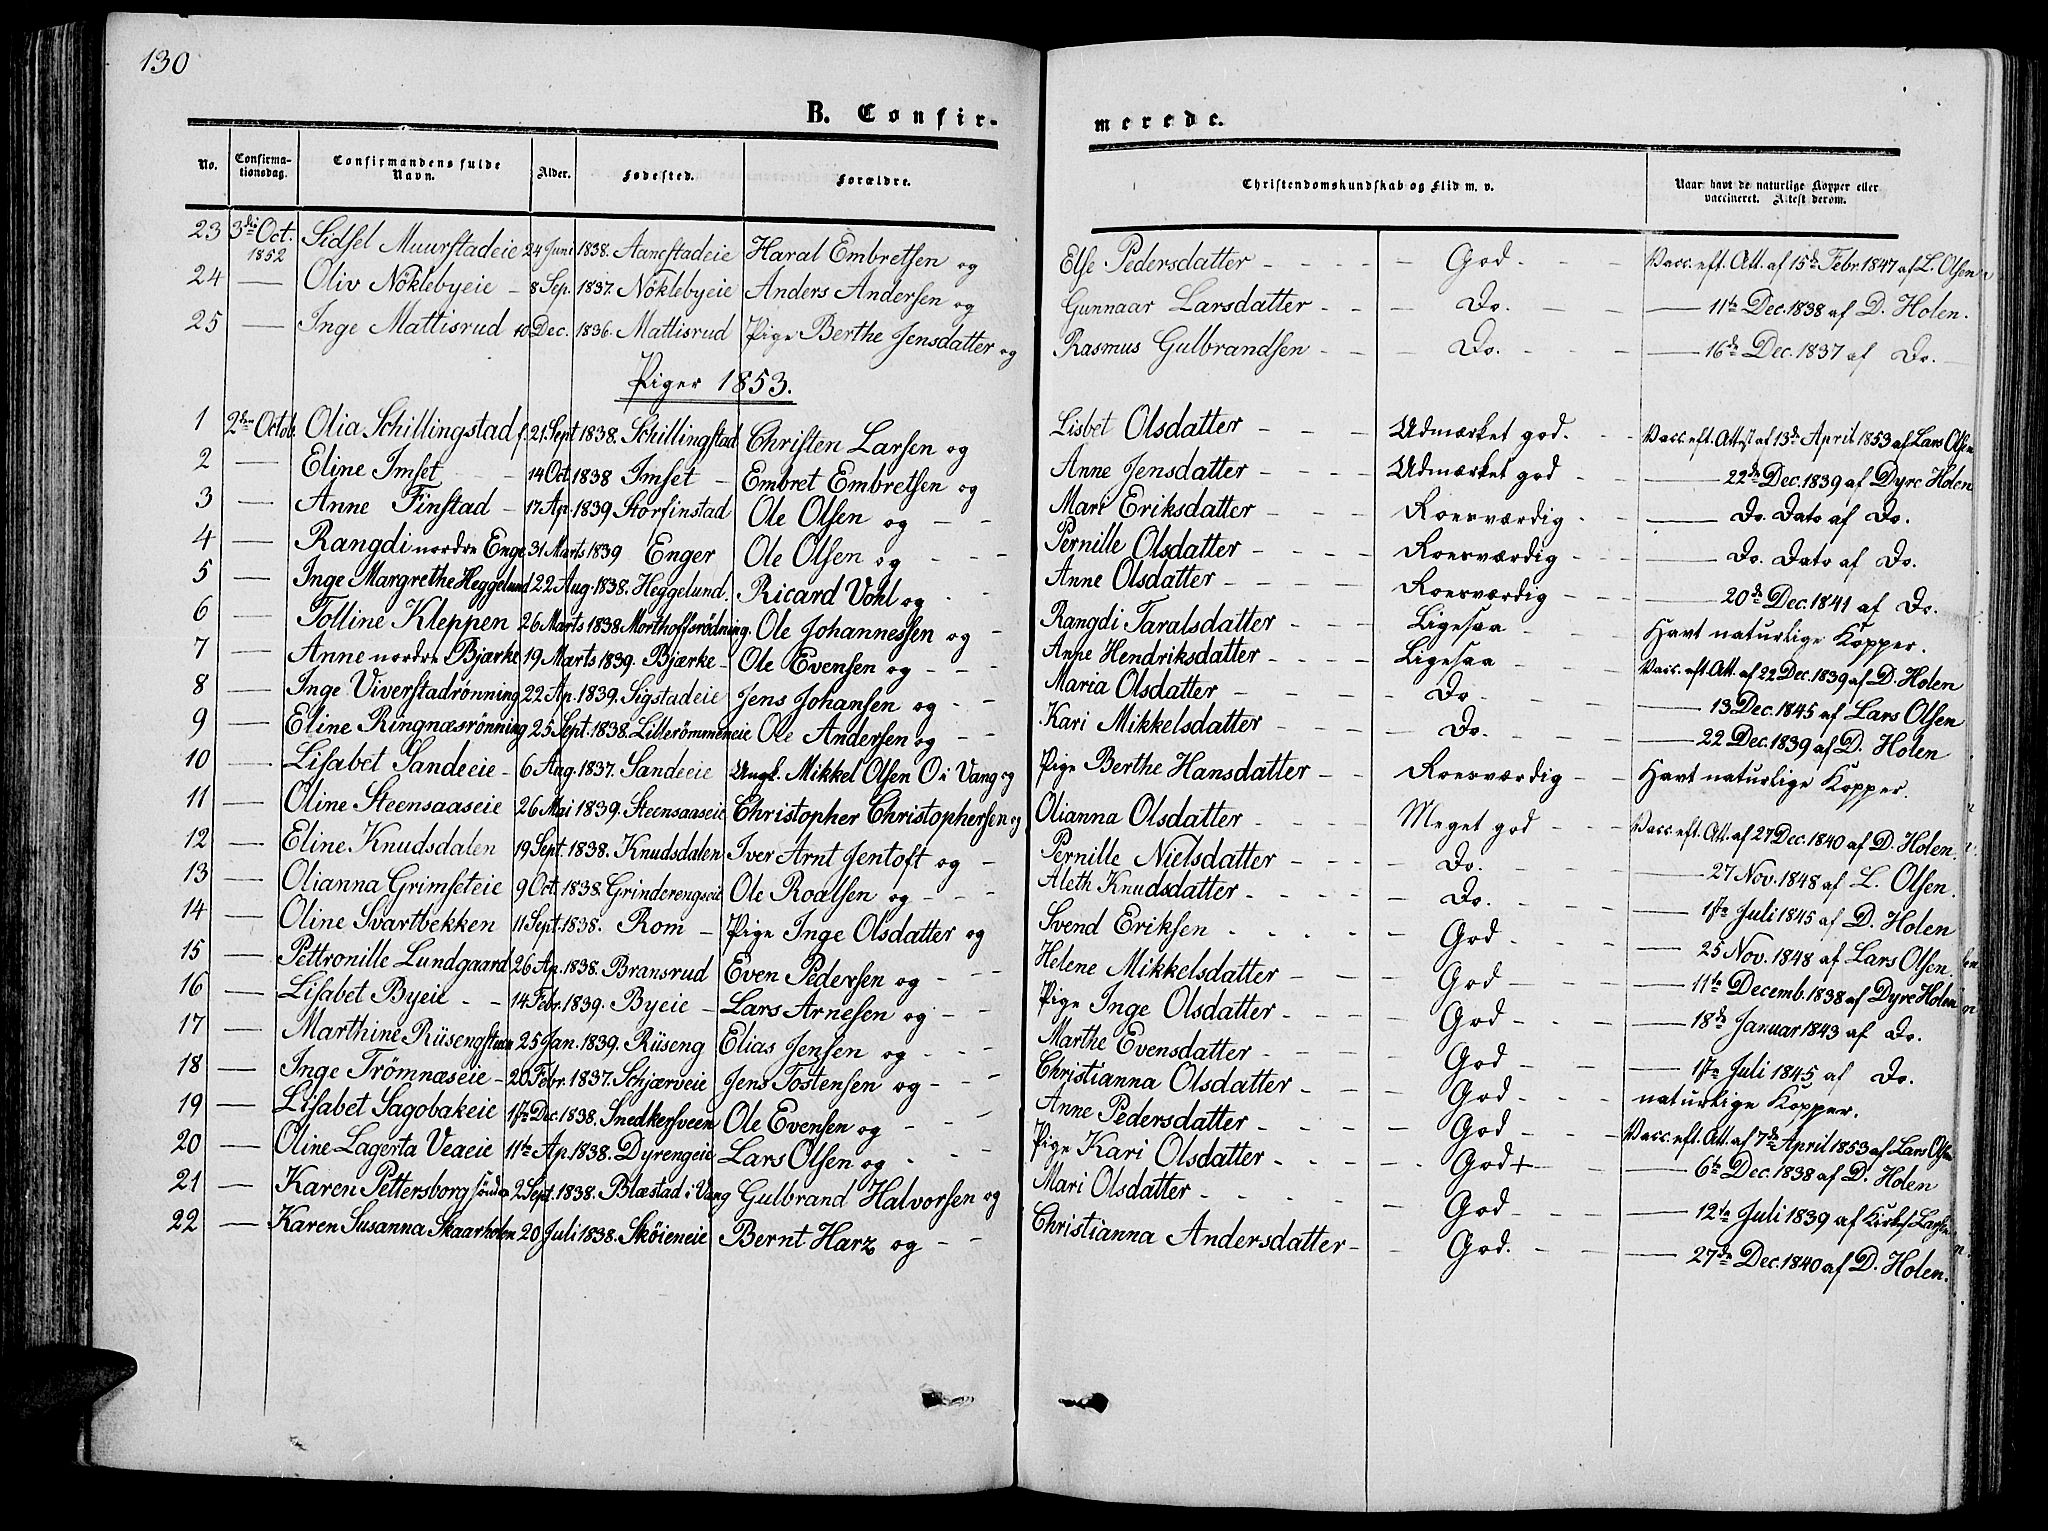 130
B. Confir-
merede.
No. Confirma-tionsdag. Confirmandens fulde Navn. Alder. Fødested. Forældre. Christendomskundskab og Flid m. v. Naar havt de naturlige Kopper eller vaccineret. Attest derom.
23 3die Oct. 1852 Sidsel Muurstadeie 24 Juni 1838. Aanestadeie Haral Embretsen og Else Pedersdatter - - - - God - - - Vacc. eft. Att. af 15de Febr. 1847 af L. Olsen
24 — Oliv Nöklebyeie - 8 Sep. 1837. Nöklebyeie Anders Andersen og Gunnaar Larsdatter - - - Do. - - — 11te Dec. 1838 af D. Holen.
25 — Inge Mattisrud 10 Dec. 1836. Mattisrud Pige Berthe Jensdatter og Rasmus Gulbrandsen - - - Do. - - - — 16de Dec. 1837 af Do.
Piger 1853.
1 2den Octob. Olia Schillingstad f. 21. Sept 1838. Schillingstad Christen Larsen og Lisbet Olsdatter - - - - Udmærket god. - - Vacc. eft. Attst af 13de April 1853 af Lars Olsen
2 — Eline Imset - - 14 Oct. 1838 Imset - Embret Embretsen og Anne Jensdatter - - - - Udmærket god - - — 22de Dec. 1839 af Dyre Holen
3 — Anne Finstad - 17 Ap. 1839 Storfinstad Ole Olsen og - - Mari Eriksdatter - - - - Roesværdig - - — Do. Dato af Do.
4 — Rangdi nordre Enge 31 Marts 1839 Enger Ole Olsen og - - - Pernille Olsdatter - - - - Roesværdig - - — Do. Dato af Do.
5 — Inge Margrethe Heggelund 22 Aug. 1838. Heggelund. Ricard Vohl og - - Anne Olsdatter - - - - Roesværdig - - — 20de Dec. 1841 af Do.
6 — Tolline Kleppen 26 Marts 1838 Morthoffsrödning. Ole Johannessen og - Rangdi Taralsdatter - - - - Ligesaa - - Havt naturlige Kopper.
7 — Anne nordre Bjærke 19 Marts 1839. Bjærke - Ole Evensen og - - Anne Hendriksdatter - - - - Ligesaa - - Vacc. eft. Att. af 22 Dec. 1839 af D. Holen
8 — Inge Viverstadrønning 22 Ap. 1839. Sigstadeie Jens Johansen og - - Maria Olsdatter - - - - - Do - - - — 13 Dec. 1845 af Lars Olsen
9 — Eline Ringnæsrønning 25 Sept. 1838. Lillerömmeneie Ole Andersen og - - Kari Mikkelsdatter - - - - Do. - - - — 22 Dec. 1839 af D. Holen
10 — Lisabet Sandeeie - 6 Aug. 1837. Sandeeie Ungk. Mikkel Olsen O i Vang og Pige Berthe Hansdatter - - Roesværdig - - Havt naturlige Kopper.
11 — Oline Steensaaseie 26 Mai 1839. Steensaaseie Christopher Christophersen og Olianna Olsdatter - - - - Meget god - - - Vacc. eft. Att. af 27 Dec. 1840 af D. Holen.
12 — Eline Knudsdalen 19 Sept. 1838. Knudsdalen Iver Arnt Jentoft og - Pernille Nielsdatter - - - - Do. - - - — 27 Nov. 1848 af L. Olsen.
13 — Olianna Grimseteie 9 Oct. 1838. Grinderengseie Ole Roalsen og - - - Aleth Knudsdatter - - - - Do. - - - — 1ste Juli 1845 af D. Holen
14 — Oline Svartbekken 11 Sept. 1838. Rom - Pige Inge Olsdatter og Svend Eriksen - - - - - God - - - — 25 Nov. 1848 af Lars Olsen.
15 — Pettronille Lundgaard 26 Ap. 1838. Bransrud Even Pedersen og - - - Helene Mikkelsdatter - - - - God - - - — 11te Decemb. 1838 af Dyre Holen
16 — Lisabet Byeie - - 14 Febr. 1839. Byeie - Lars Arnesen og - - Pige Inge Olsdatter - - - - God - - - — 18de Januar 1843 af Do.
17 — Marthine Rüsengstuen 25 Jan. 1839. Rüseng Elias Jensen og - - - Marthe Evensdatter - - - - God - - - — 1ste Juli 1845 af Do.
18 — Inge Trömnæseie - 20 Febr. 1837. Schjærveie Jens Tostensen og - - - Christianna Olsdatter - - - God - - - naturlige Kopper.
19 — Lisabet Sagobakeie 1ste Dec. 1838. Snedkersveen Ole Evensen og - - - Anne Pedersdatter - - - - God - - - Vacc. eft. Att. af 7de April 1853 af Lars Olsen
20 — Oline Lagerta Veaeie 11te Ap. 1838. Dyrengeie Lars Olsen og - - - Pige Kari Olsdatter - - - - God+ - - — 6te Dec. 1838 af D. Holen
21 — Karen Pettersborg søndre 2 Sept. 1838. Blæstad i Vang Gulbrand Halvorsen og Mari Olsdatter - - - - - God - - - — 12te Juli 1839 af Kirkes. Larsen
22 — Karen Susanna Skaarholen 20 Juli 1838. Sköieneie Bernt Harz og - - Christianna Andersdatter - - God. - - - — 27de Dec. 1840 af D. Holen.